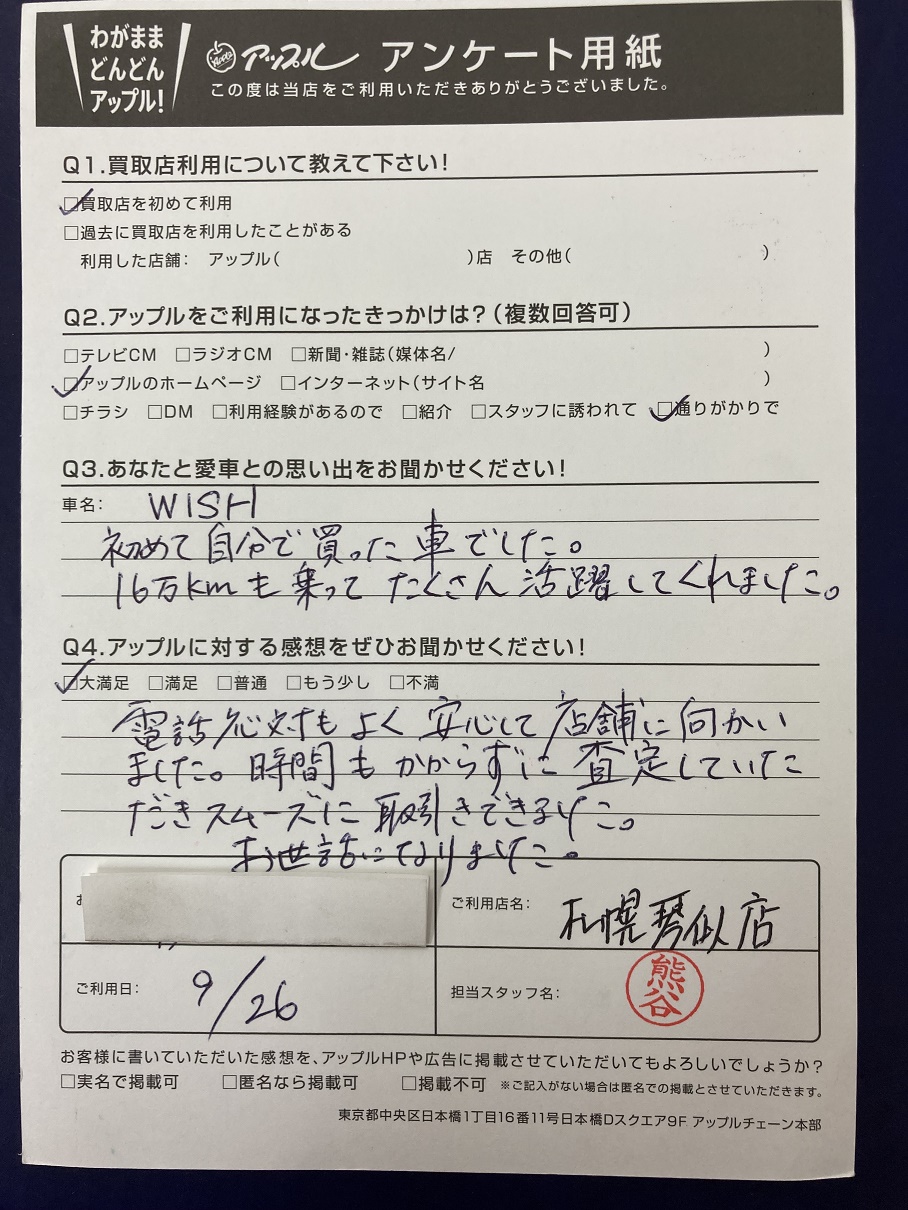 わがまま
どんどん
アップル!
アップル アンケート用紙
この度は当店をご利用いただきありがとうございました。
Q1.買取店利用について教えて下さい!
☑買取店を初めて利用
□過去に買取店を利用したことがある
利用した店舗: アップル( )店 その他( )
Q2.アップルをご利用になったきっかけは?(複数回答可)
□テレビCM □ラジオCM □新聞・雑誌(媒体名/ )
☑アップルのホームページ □インターネット(サイト名 )
□チラシ □DM □利用経験があるので □紹介 □スタッフに誘われて ☑通りがかりで
Q3.あなたと愛車との思い出をお聞かせください!
車名: WISH
初めて自分で買った車でした。
16万kmも乗ってたくさん活躍してくれました。
Q4.アップルに対する感想をぜひお聞かせください!
☑大満足 □満足 □普通 □もう少し □不満
電話応対もよく安心して店舗に向かい
ました。時間もかからずに査定していた
だきスムーズに取引きできました。
お世話になりました。
ご利用店名: 札幌琴似店
ご利用日: 9/26
担当スタッフ名: 熊谷
お客様に書いていただいた感想を、アップルHPや広告に掲載させていただいてもよろしいでしょうか?
□実名で掲載可 □匿名なら掲載可 □掲載不可 ※ご記入がない場合は匿名での掲載とさせていただきます。
東京都中央区日本橋1丁目16番11号日本橋Dスクエア9F アップルチェーン本部